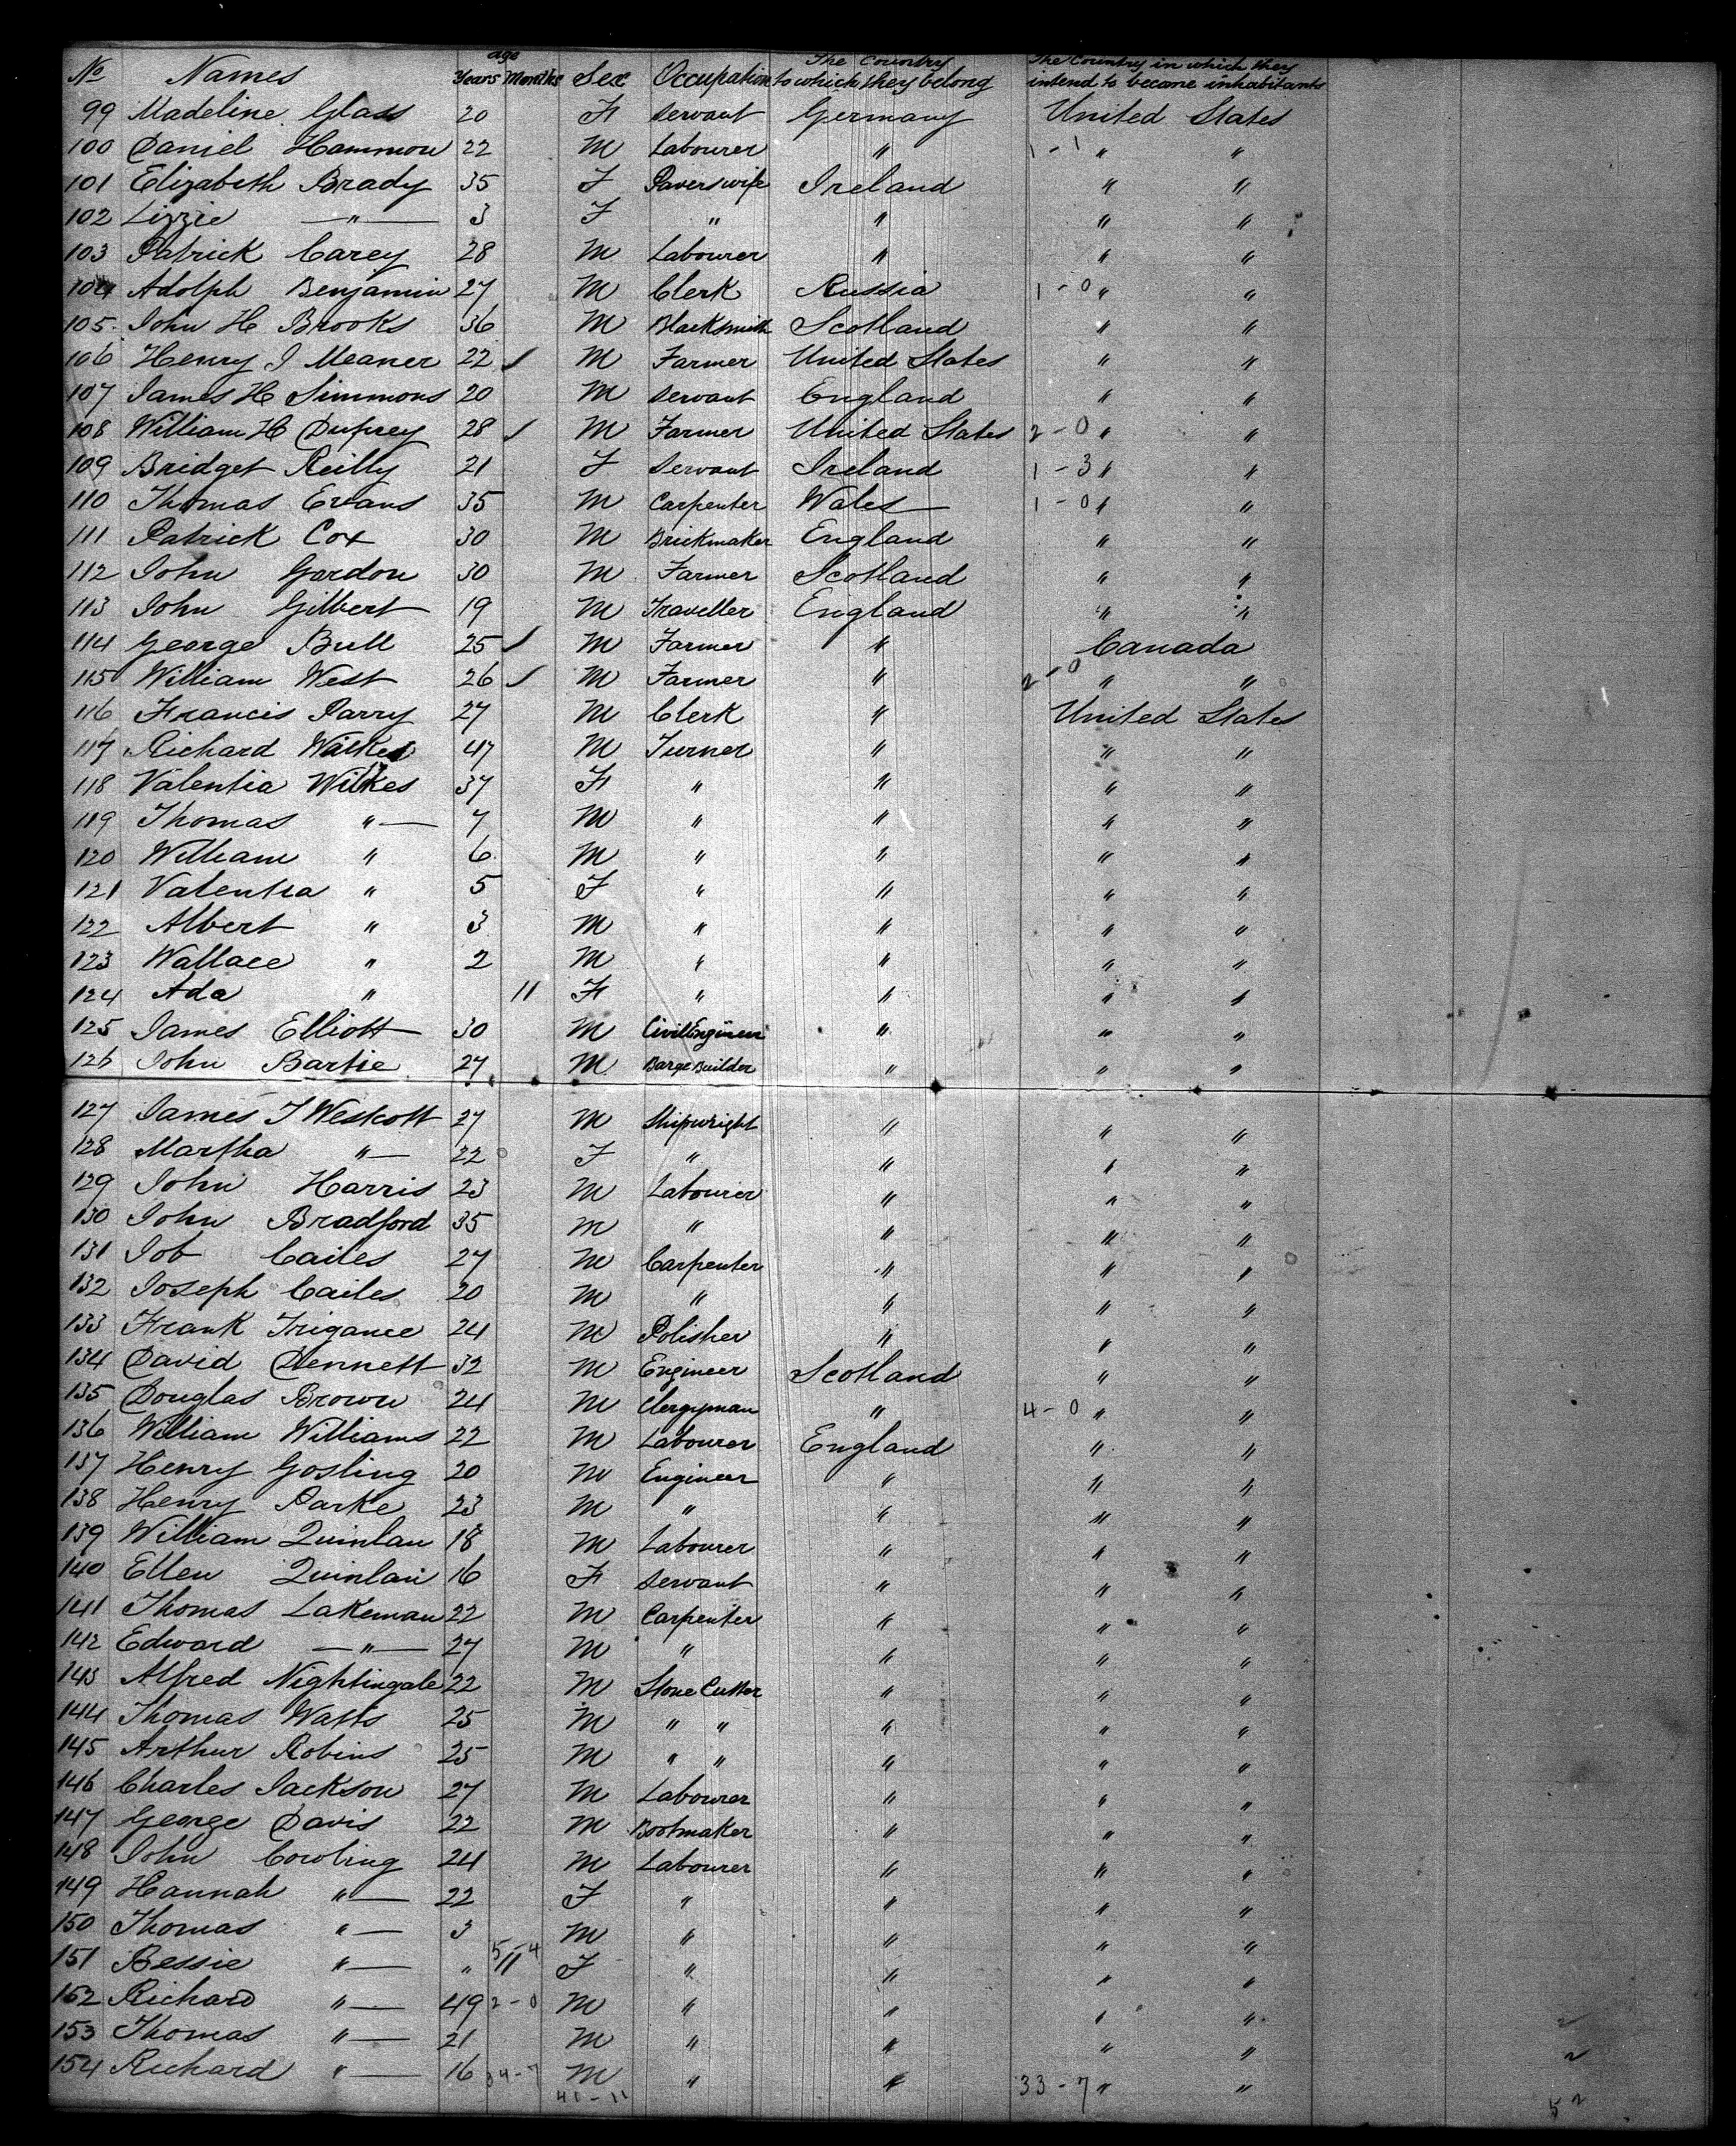 No Names age Years Months Sex Occupation The Country to which they belong The Country in which they intend to become inhabitants
99 Madeline Glass 20 F Servant Germany United States
100 Daniel Hammon 22 M Labourer " 1-1 " "
101 Elizabeth Brady 35 F Paverswife Ireland " "
102 Lizzie —"— 3 F " " " "
103 Patrick Carey 28 M Labourer " " "
104 Adolph Benjamin 27 M Clerk Russia 1-0 " "
105 John H Brooks 36 M Blacksmith Scotland " "
106 Henry J Meaner 22 ✓ M Farmer United States " "
107 James H Simmons 20 M Servant England " "
108 William H Duprey 28 ✓ M Farmer United States 2-0 " "
109 Bridget Reilly 21 F Servant Ireland 1-3 " "
110 Thomas Evans 35 M Carpenter Wales 1-0 " "
111 Patrick Cox 30 M Brickmaker England " "
112 John Gordon 30 M Farmer Scotland " "
113 John Gilbert 19 M Traveller England " "
114 George Bull 25 ✓ M Farmer " Canada
115 William West 26 ✓ M Farmer " 2-0 " "
116 Francis Parry 27 M Clerk " United States
117 Richard Wilkes 47 M Turner " " "
118 Valentia Wilkes 37 F " " " "
119 Thomas "— 7 M " " " "
120 William " 6 M " " " "
121 Valentia " 5 F " " " "
122 Albert " 3 M " " " "
123 Wallace " 2 M " " " "
124 Ada " 11 F " " " "
125 James Elliott 30 M Civil Engineer " " "
126 John Bartie 27 M Barge Builder " " "
127 James J Weskott 27 M Shipwright " " "
128 Martha "— 22 F " " " "
129 John Harris 23 M Labourer " " "
130 John Bradford 35 M " " " "
131 Job Cailes 27 M Carpenter " " "
132 Joseph Cailes 20 M " " " "
133 Frank Trigance 24 M Polisher " " "
134 David Dennett 32 M Engineer Scotland " "
135 Douglas Brown 24 M Clergyman " 4-0 " "
136 William Williams 22 M Labourer England " "
137 Henry Gosling 20 M Engineer " " "
138 Henry Parke 23 M " " " "
139 William Quinlan 18 M Labourer " " "
140 Ellen Quinlan 16 F Servant " " "
141 Thomas Lakeman 22 M Carpenter " " "
142 Edward —"— 27 M " " " "
143 Alfred Nightingale 22 M Stone Cutter " " "
144 Thomas Watts 25 M " " " " "
145 Arthur Robins 25 M " " " " "
146 Charles Jackson 27 M Labourer " " "
147 George Davis 22 M Bootmaker " " "
148 John Cowling 24 M Labourer " " "
149 Hannah "— 22 F " " " "
150 Thomas "— 3 M " " " "
151 Bessie "— " 11 F " " " "
152 Richard "— 49 2-0 M " " " "
153 Thomas "— 21 M " " " "
154 Richard "— 16 34-7 M " " 33-7 " "
41-11
52